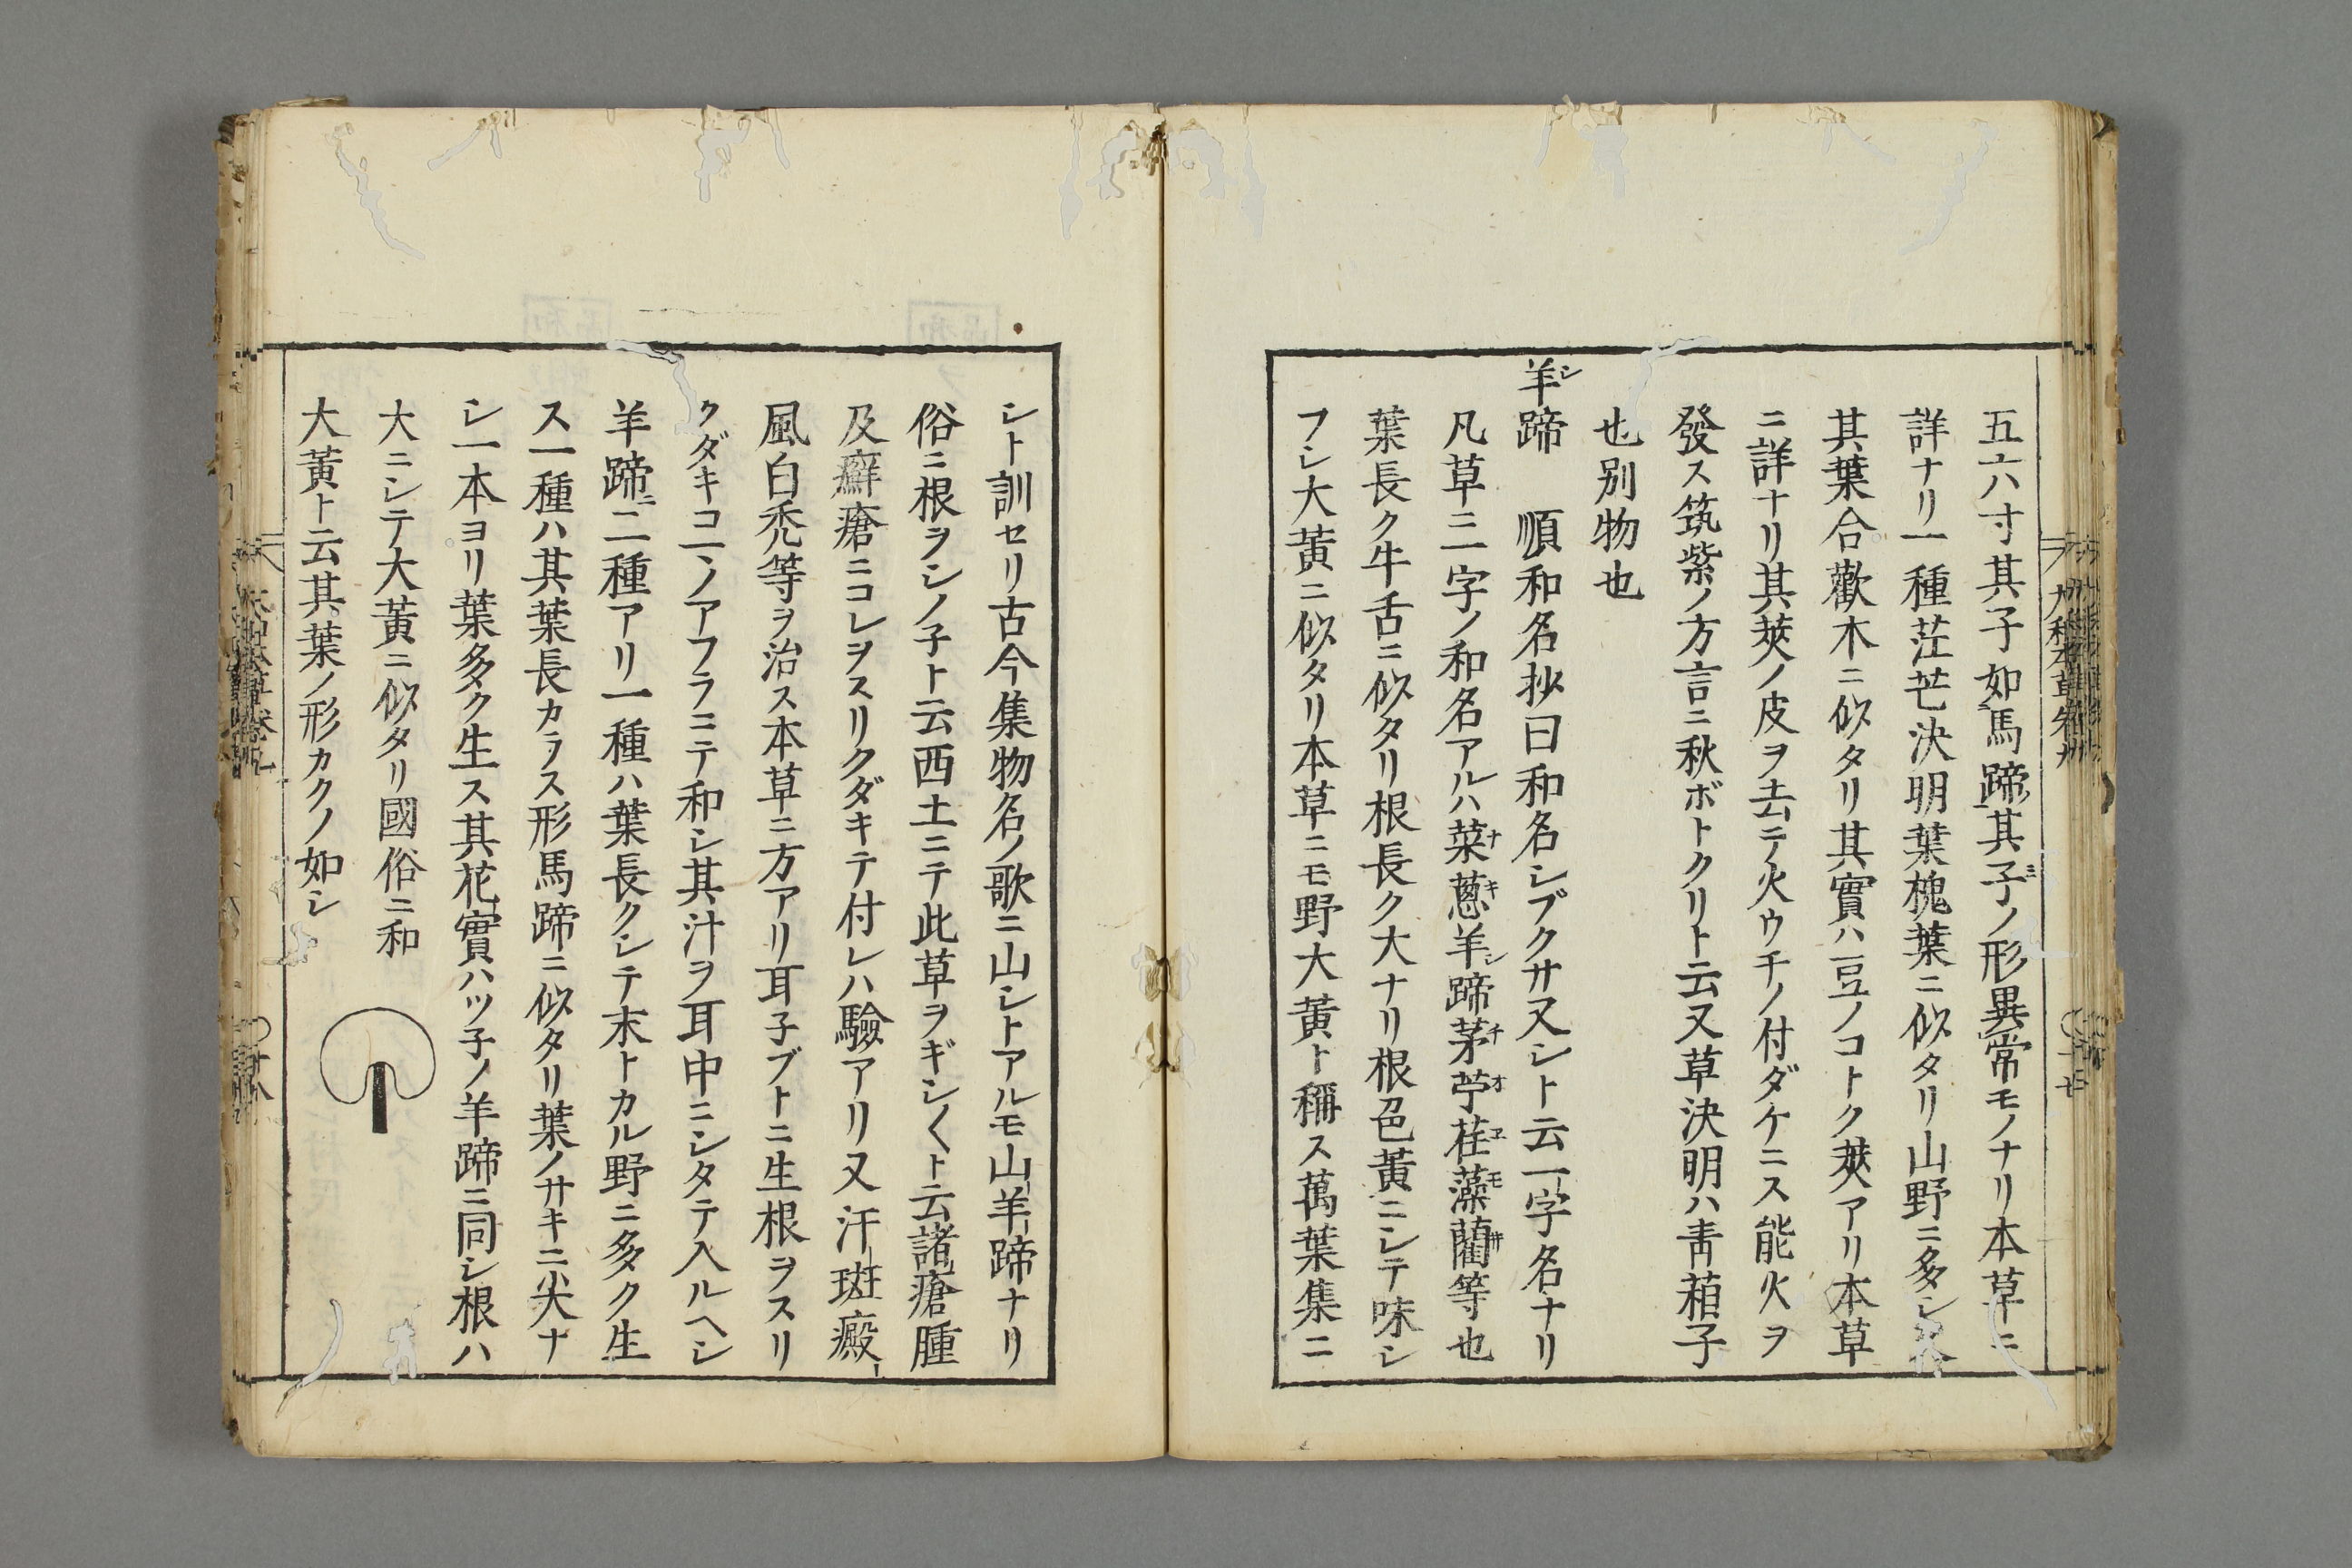 五六寸其子如馬蹄其子ノ形異常モノナリ本草ニ
詳ナリ一種茳芒決明葉槐葉ニ似タリ山野ニ多シ
其葉合歡木ニ似タリ其實ハ豆ノコトク莢アリ本草
ニ詳ナリ其莢ノ皮ヲ去テ火ウチノ付ダケニス能火ヲ
發ス筑紫ノ方言ニ秋ボトクリト云又草決明ハ青葙子
也別物也
羊蹄 順和名抄曰和名シブクサ又シト云一字名ナリ
凡草ニ一字ノ和名アルハ菜葱羊蹄茅苧荏藻藺等也
葉長ク牛舌ニ似タリ根長ク大ナリ根色黃ニシテ味シ
フシ大黃ニ似タリ本草ニモ野大黃ト稱ス萬葉集ニ
シト訓セリ古今集物名ノ歌ニ山シトアルモ山羊蹄ナリ
俗ニ根ヲシノ子ト云西土ニテ此草ヲギシ〱ト云諸瘡腫
及癬瘡ニコレヲスリクダキテ付レハ驗アリ又汗斑癜
風白禿等ヲ治ス本草ニ方アリ耳子ブトニ生根ヲスリ
クダキゴマノアフラニテ和シ其汁ヲ耳中ニシタテ入ルヘシ
羊蹄ニ二種アリ一種ハ葉長クシテ末トカル野ニ多ク生
ス一種ハ其葉長カラス形馬蹄ニ似タリ葉ノサキニ尖ナ
シ一本ヨリ葉多ク生ス其花實ハツ子ノ羊蹄ニ同シ根ハ
大ニシテ大黃ニ似タリ國俗ニ和
大黃ト云其葉ノ形カクノ如シ